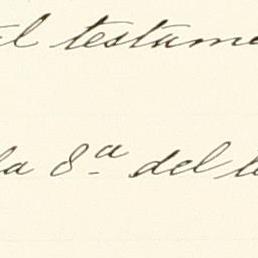 el testame
la 8.ª del